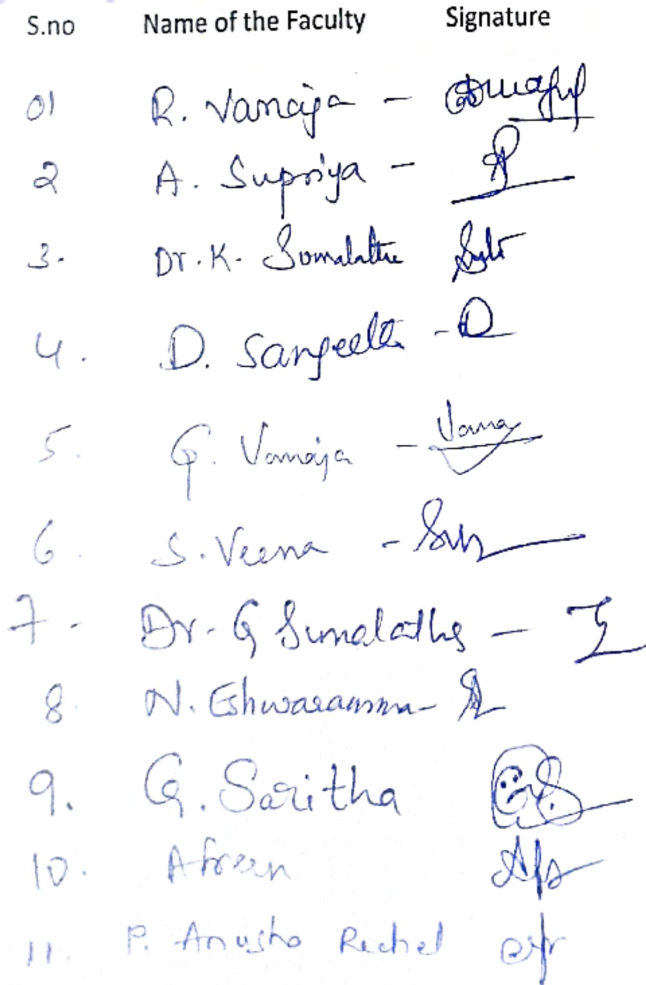 S.no Name of the Faculty Signature
01 R. Vanaja -
2 A. Supriya -
3. Dr. K. Sumalatha
4. D. Sangeetha -
5. G. Vanaja -
6. S. Veena -
7. Dr. G Sumalatha -
8. N. Eshwaramma -
9. G. Saritha
10. Afreen
11. P. Anusha Rachel